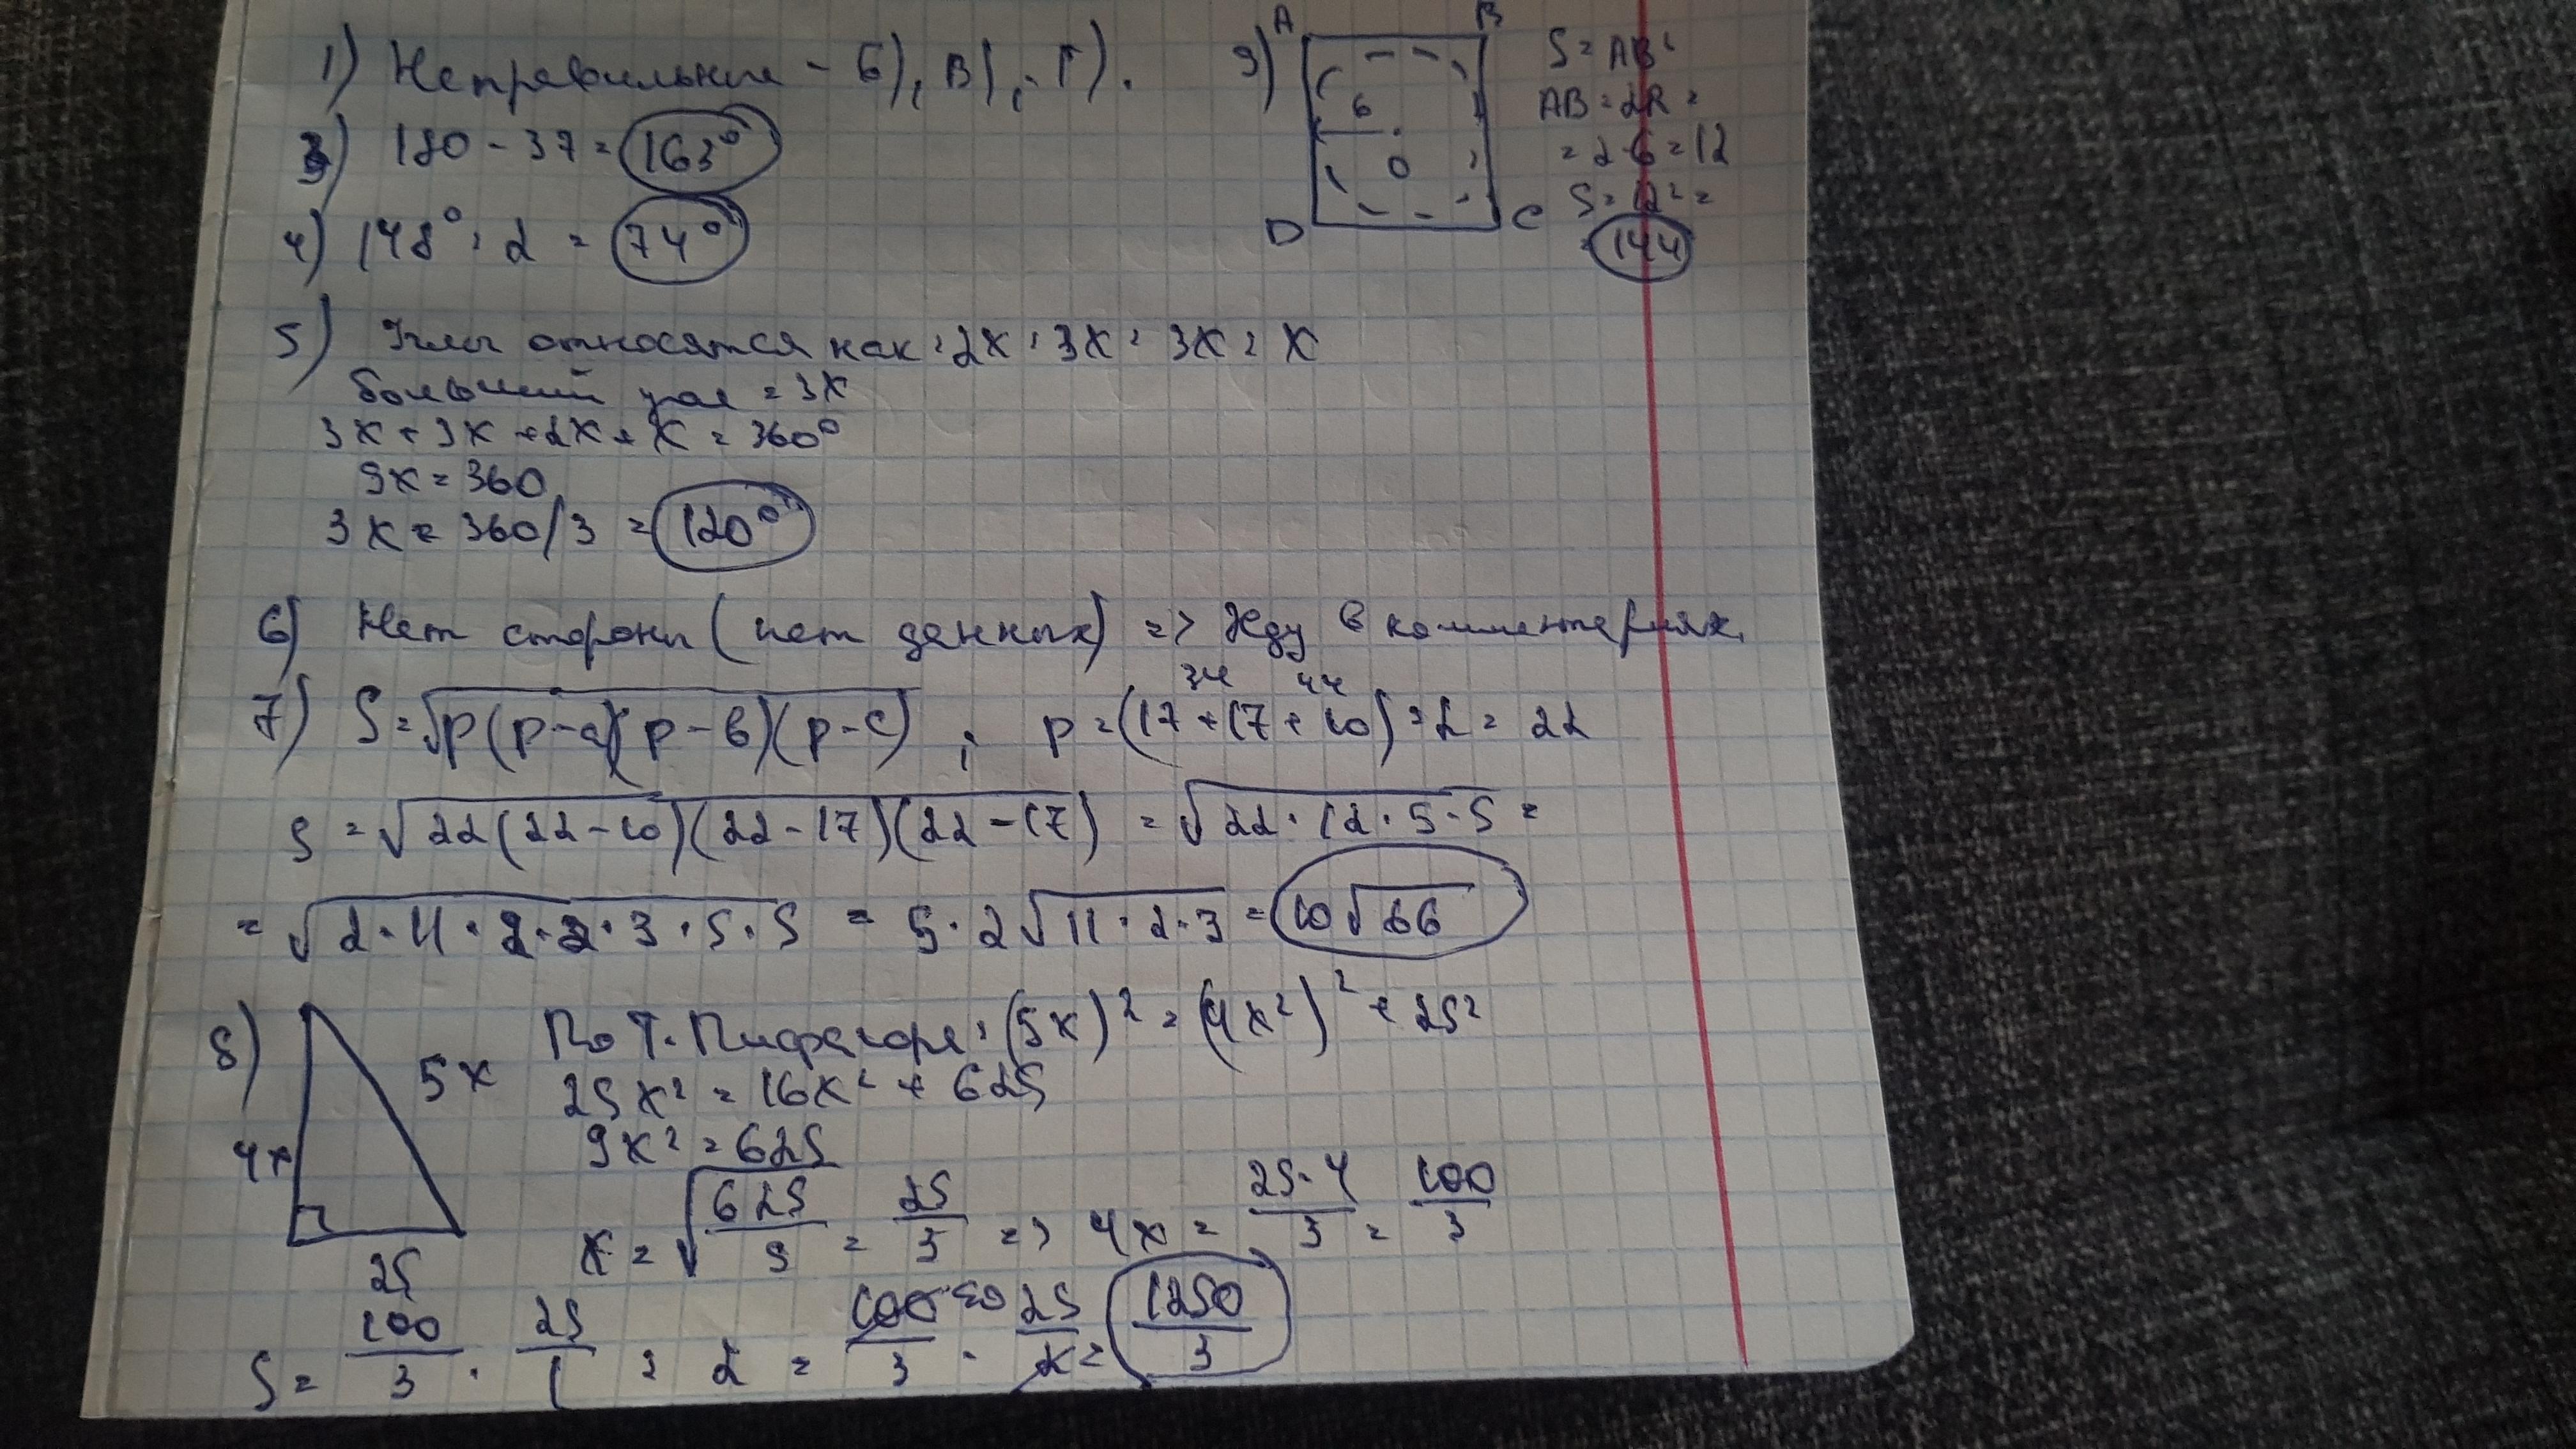 1) Неправильные - б), в), г).
3) 180 - 37 = 163°
4) 148° : 2 = 74°
9) A B
6
O
D C
S = AB²
AB = 2R =
= 2·6 = 12
S = 12² =
= 144
5) Углы относятся как: 2x : 3x : 3x : x
больший угол = 3x
3x + 3x + 2x + x = 360°
9x = 360
3x = 360/3 = 120°
6) Нет стороны (нет данных) => Жду в комментариях.
34 44
7) S = √p(p-a)(p-в)(p-c) ; p = (17+17+10) : 2 = 22
S = √22(22-10)(22-17)(22-17) = √22·12·5·5 =
= √2·11·2·2·3·5·5 = 5·2√11·2·3 = 10√66
8) 4x 5x 25
По т. Пифагора: (5x)² = (4x²)² + 25²
25x² = 16x² + 625
9x² = 625
x = √625/9 = 25/3 => 4x = 25·4/3 = 100/3
S = 100/3 · 25/1 : 2 = 100/3 50 · 25/2 = 1250/3